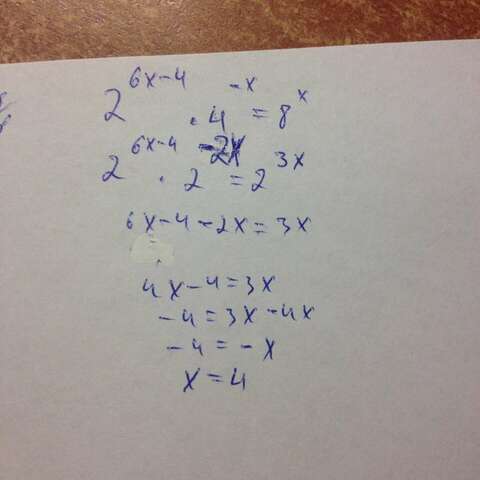 2^{6x-4} · 4^{-x} = 8^{x}
2^{6x-4} · 2^{-2x} = 2^{3x}
6x-4-2x=3x
4x-4=3x
-4=3x-4x
-4=-x
x=4